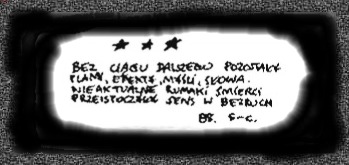 ★ ★ ★
BEZ CIĄGU DALSZEGO POZOSTAŁY
PLAMY, EFEKTY, MYŚLI, SŁOWA.
NIEAKTUALNE RUMAKI ŚMIERCI
PRZEISTOCZYŁY SENS W BEZRUCH